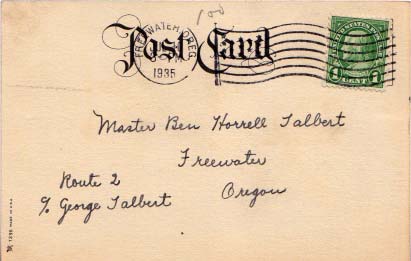 Post Card
FREEWATER, OREG.
PM
1935
UNITED STATES POSTAGE
1 CENT 1
Master Ben Horrell Talbert
Freewater
Route 2 Oregon
c/o George Talbert